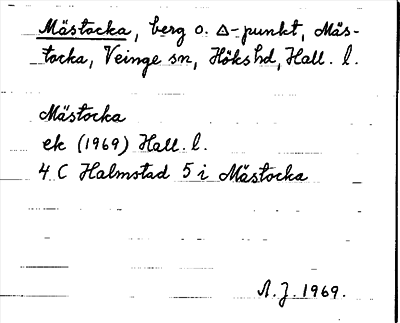 Mästocka, berg o. Δ-punkt, Mäs-
tocka, Veinge sn, Höks hd, Hall. l.
Mästocka
ek (1969) Hall. l.
4 C Halmstad 5 i Mästocka
A.J. 1969.